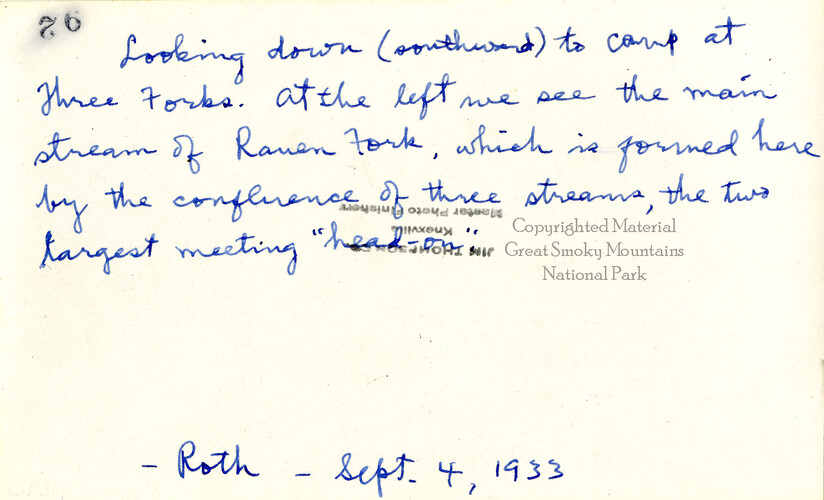 26
Looking down (southward) to camp at
Three Forks. At the left we see the main
stream of Raven Fork, which is formed here
by the confluence of three streams, the two
largest meeting "head-on".
Master Photo Finishers
Knoxville
JIM THOMPSON CO
Copyrighted Material
Great Smoky Mountains
National Park
- Roth - Sept. 4, 1933